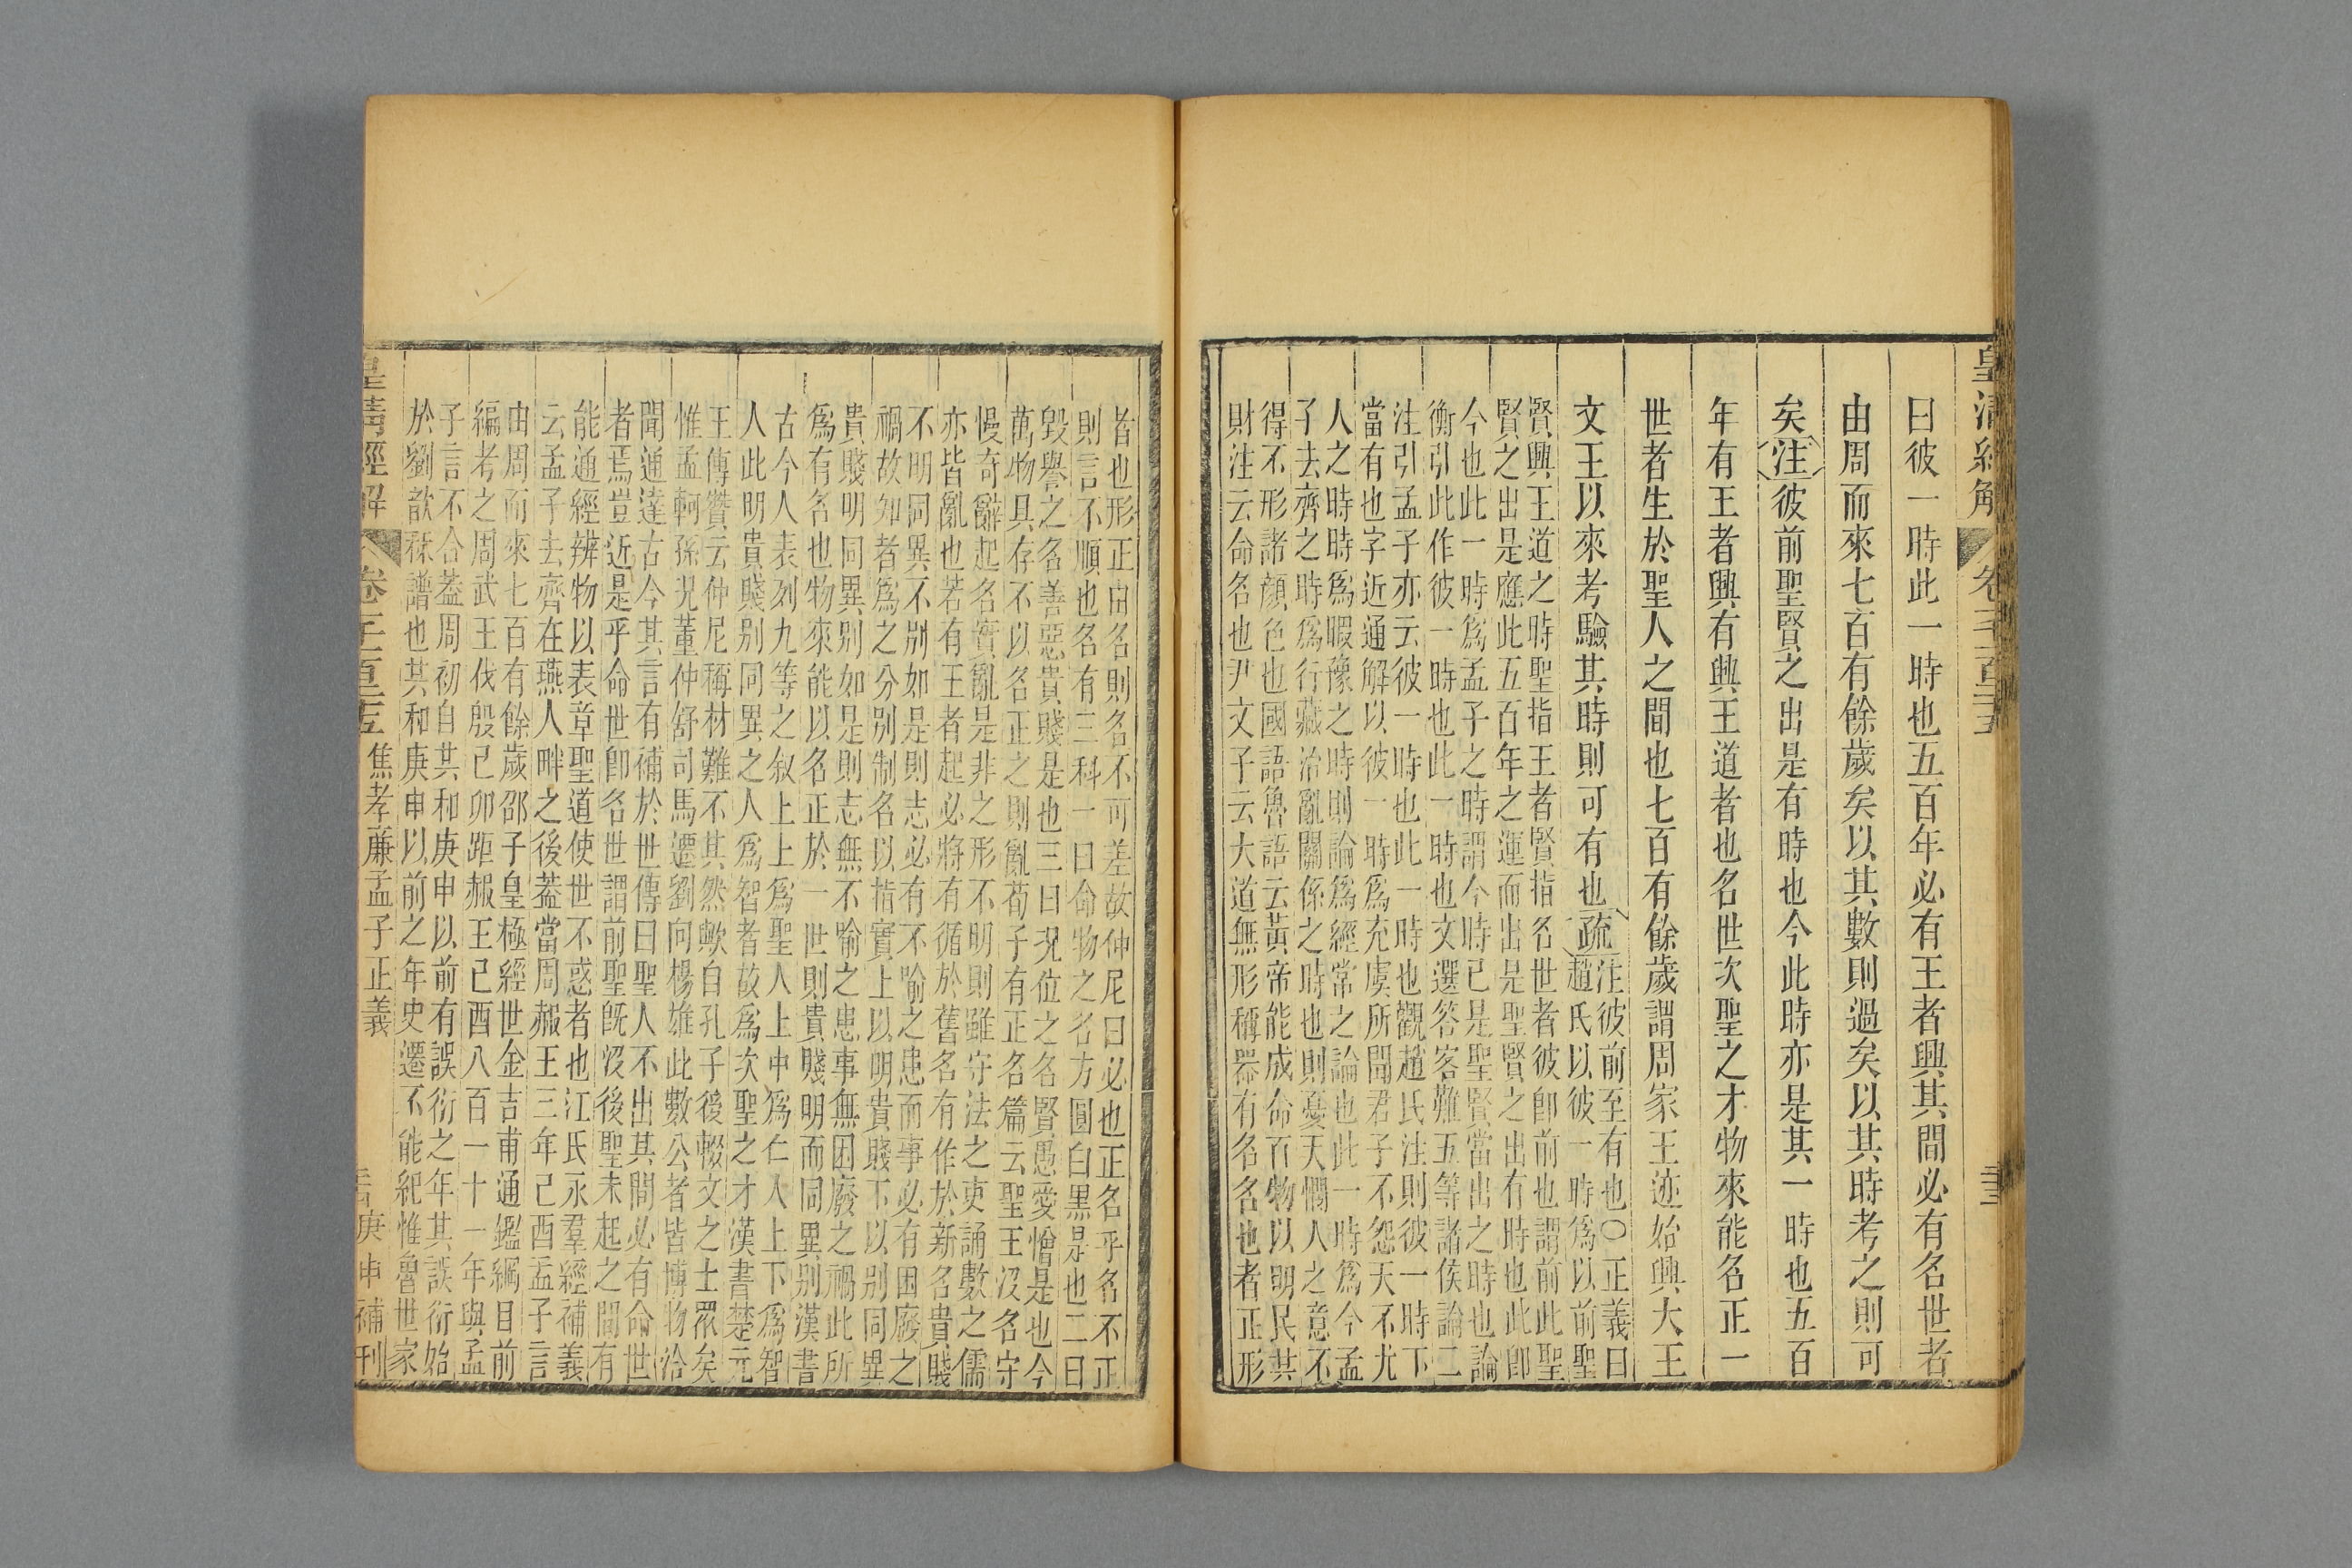 皇清經解 卷
曰彼一時此一時也五百年必有王者興其間必有名世者
由周而來七百有餘歲矣以其數則過矣以其時考之則可
矣注彼前聖賢之出是有時也今此時亦是其一時也五百
年有王者興有興王道者也名世次聖之才物來能名正一
世者生於聖人之間也七百有餘歲謂周家王迹始興大王
文王以來考驗其時則可有也疏注彼前至有也○正義曰
趙氏以彼一時爲以前聖
賢興王道之時聖指王者賢指名世者彼卽前也謂前此聖
賢之出是應此五百年之運而出是聖賢之出有時也此卽
今也此一時爲孟子之時謂今時已是聖賢當出之時也論
衡引此作彼一時也此一時也文選答客難五等諸侯論二
注引孟子亦云彼一時也此一時也觀趙氏注則彼一時下
當有也字近通解以彼一時爲充虞所聞君子不怨天不尤
人之時時爲暇豫之時則論爲經常之論也此一時爲今孟
子去齊之時爲行藏治亂關係之時也則憂天憫人之意不
得不形諸顔色也國語魯語云黃帝能成命百物以明民共
財注云命名也尹文子云大道無形稱器有名名也者正形
者也形正由名則名不可差故仲尼曰必也正名乎名不正
則言不順也名有三科一曰命物之名方圓白黑是也二曰
毀譽之名善惡貴賤是也三曰況位之名賢愚愛憎是也今
萬物具存不以名正之則亂荀子有正名篇云聖王沒名守
慢奇辭起名實亂是非之形不明則雖守法之吏誦數之儒
亦皆亂也若有王者起必將有循於舊名有作於新名貴賤
不明同異不別如是則志必有不喻之患而事必有困廢之
禍故知者爲之分別制名以指實上以明貴賤下以別同異
貴賤明同異別如是則志無不喻之患事無困廢之禍此所
爲有名也物來能以名正於一世則貴賤明而同異別漢書
古今人表列九等之叙上上爲聖人上中爲仁人上下爲智
人此明貴賤別同異之人爲智者故爲次聖之才漢書楚元
王傳贊云仲尼稱材難不其然歟自孔子後輟文之士眾矣
惟孟軻孫況董仲舒司馬遷劉向楊雄此數公者皆博物洽
聞通達古今其言有補於世傳曰聖人不出其間必有命世
者焉豈近是乎命世卽名世謂前聖旣沒後聖未起之間有
能通經辨物以表章聖道使世不惑者也江氏永羣經補義
云孟子去齊在燕人畔之後蓋當周赧王三年己酉孟子言
由周而來七百有餘歲邵子皇極經世金吉甫通鑑綱目前
編考之周武王伐殷己卯距赧王己酉八百一十一年與孟
子言不合蓋周初自其和庚申以前有誤衍之年其誤衍始
於劉歆厤譜也其和庚申以前之年史遷不能紀惟魯世家
皇清經解 卷 焦孝廉孟子正義 庚申補刊